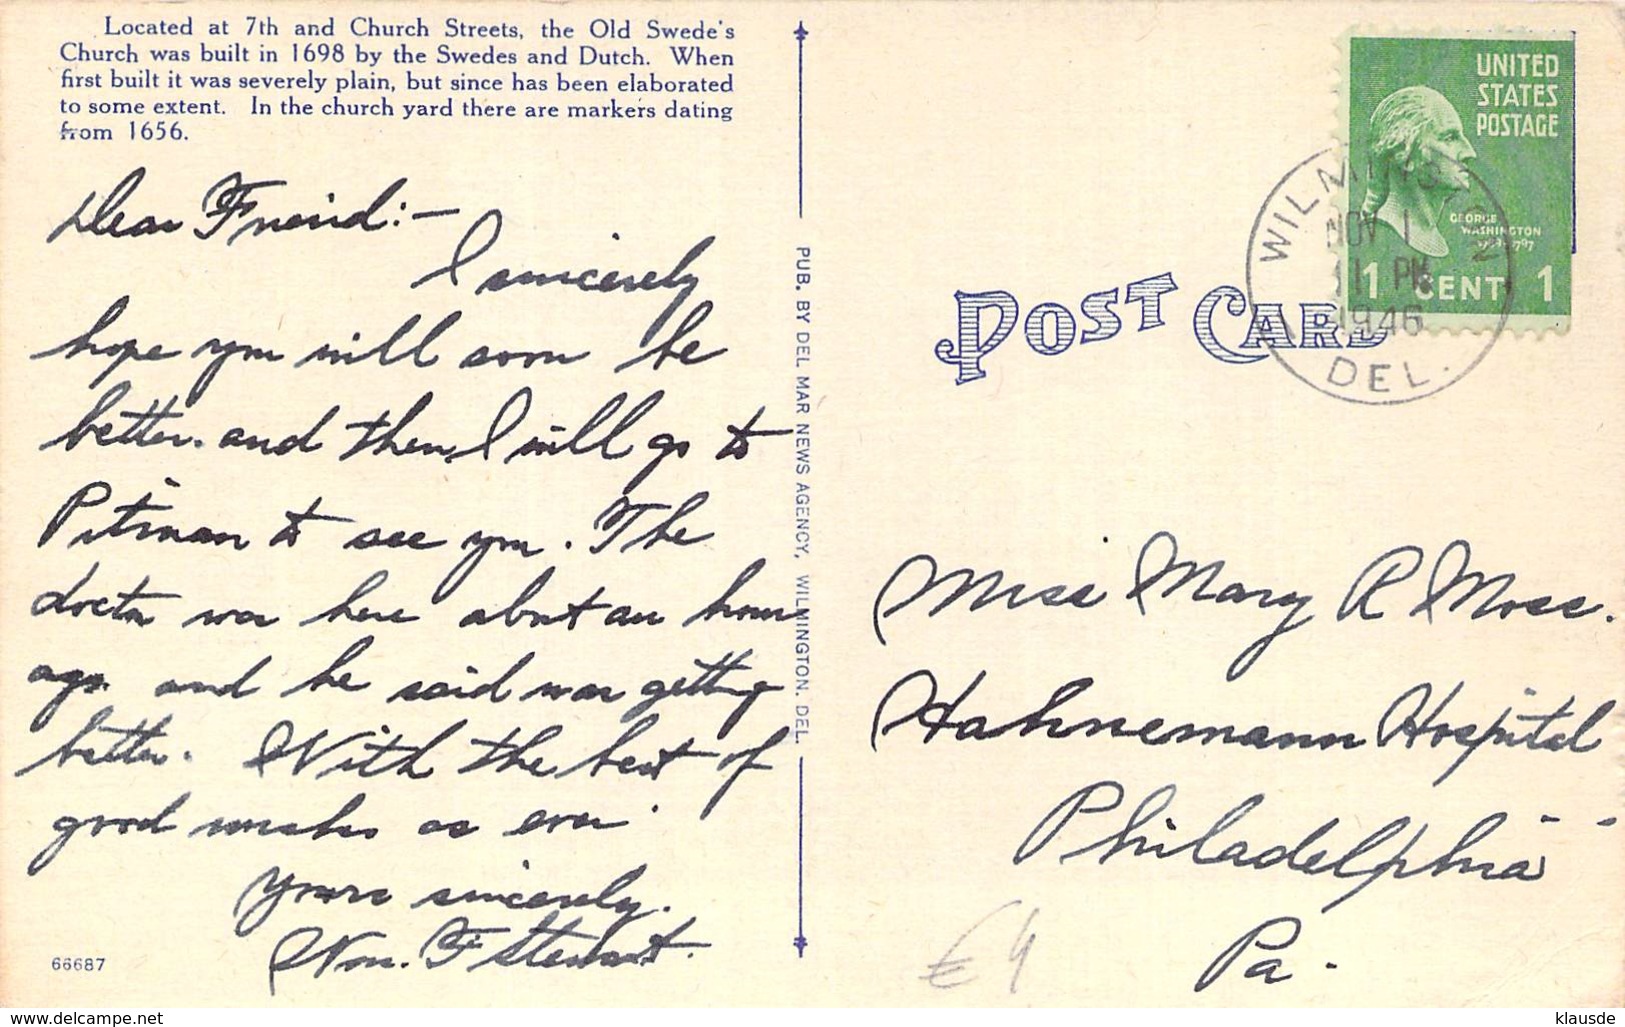 Located at 7th and Church Streets, the Old Swede's
Church was built in 1698 by the Swedes and Dutch. When
first built it was severely plain, but since has been elaborated
to some extent. In the church yard there are markers dating
from 1656.
Dear Friend:—
I sincerely
hope you will soon be
better. and then I will go to
Pitman to see you. The
doctor was here about an hour
ago. and he said was getting
better. With the best of
good wishes as ever.
Yours sincerely.
Wm. F Stewart.
66687
PUB. BY DEL MAR NEWS AGENCY, WILMINGTON. DEL.
POST CARD
UNITED
STATES
POSTAGE
GEORGE
WASHINGTON
1789-1797
1 CENT 1
WILMINGTON
NOV 1
11 PM
1946
DEL.
Miss Mary R Moss.
Hahnemann Hospital
Philadelphia
Pa.
€4
www.delcampe.net
klausde